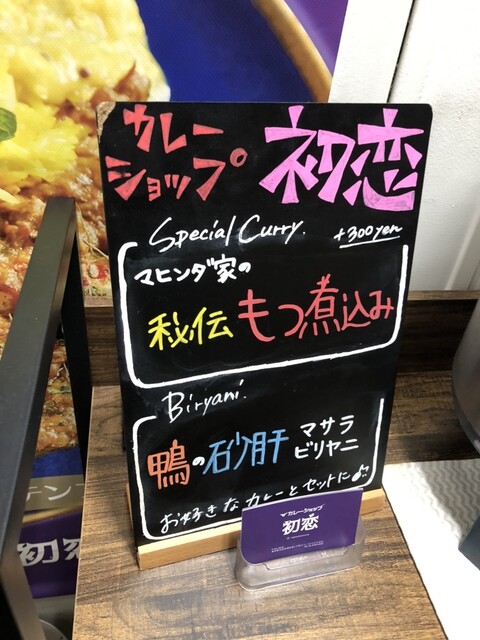 カレー
ショップ 初恋
Special Curry. +300yen
マヒンダ家の
秘伝 もつ煮込み
Biryani.
鴨の砂肝 マサラ
ビリヤニ
お好きなカレーとセットに♪
カレーショップ
初恋
初恋